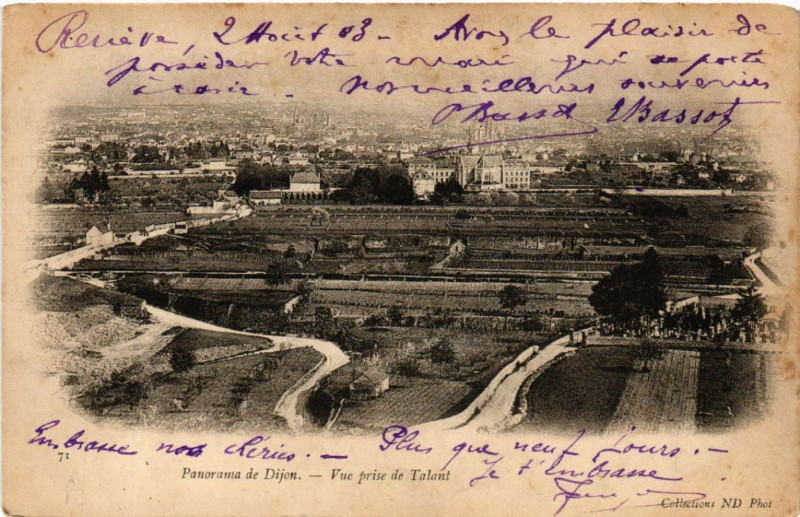 Renève, 2 Août 03 - Avons le plaisir de
posséder votre mari qui se porte
à ravir - Nos meilleurs souvenirs
Bassot EBassot
Embrasse nos chéries. - Plus que neuf jours. -
Je t'embrasse
71
Panorama de Dijon. — Vue prise de Talant
Collections ND Phot